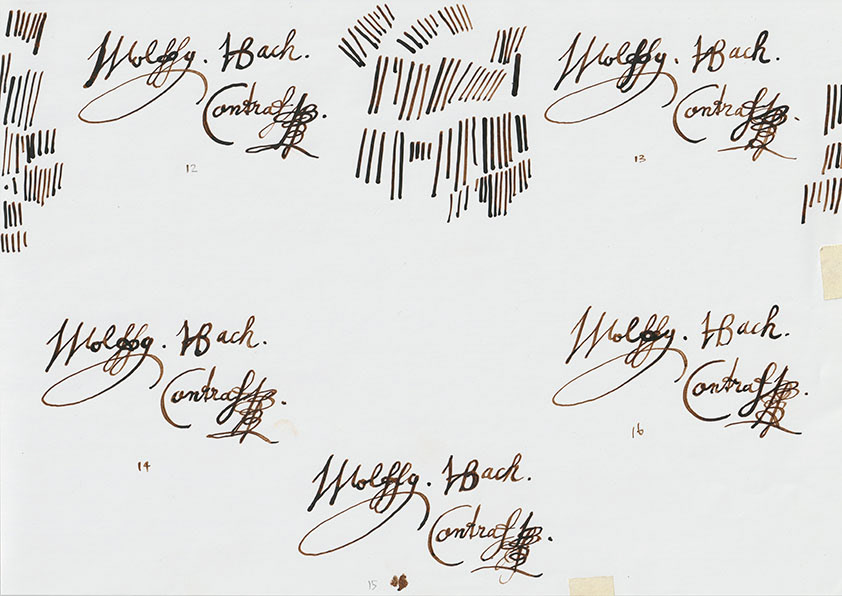 Wolffg. HBach.
Contraf
12
Wolffg. HBach.
Contraf
13
Wolffg. HBach.
Contraf
14
Wolffg. HBach.
Contraf
16
Wolffg. HBach.
Contraf
15